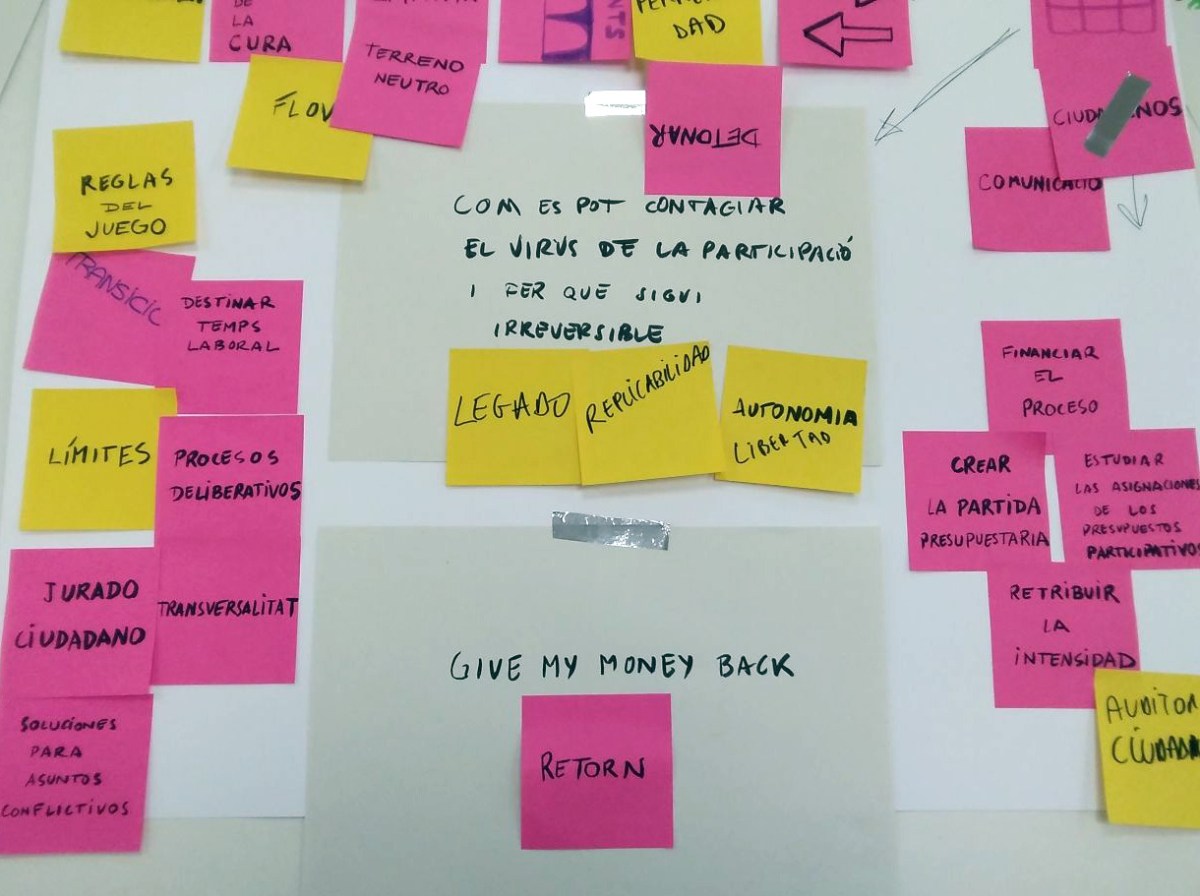 DE
LA
CURA
TERRENO
NEUTRO
NTS
DAD
FLOW
DETONAR
CIUDADANOS
COMUNICACIÓ
REGLAS
DEL
JUEGO
COM ES POT CONTAGIAR
EL VIRUS DE LA PARTICIPACIÓ
I FER QUE SIGUI
IRREVERSIBLE
TRANSICIO
DESTINAR
TEMPS
LABORAL
LEGADO
REPLICABILIDAD
AUTONOMIA
LIBERTAD
FINANCIAR
EL
PROCESO
LÍMITES
PROCESOS
DELIBERATIVOS
CREAR
LA PARTIDA
PRESUPUESTARIA
ESTUDIAR
LAS ASIGNACIONES
DE LOS
PRESUPUESTOS
PARTICIPATIVOS
JURADO
CIUDADANO
TRANSVERSALITAT
RETRIBUIR
LA
INTENSIDAD
GIVE MY MONEY BACK
RETORN
AUDITOR
CIUDADA
SOLUCIONES
PARA
ASUNTOS
CONFLICTIVOS